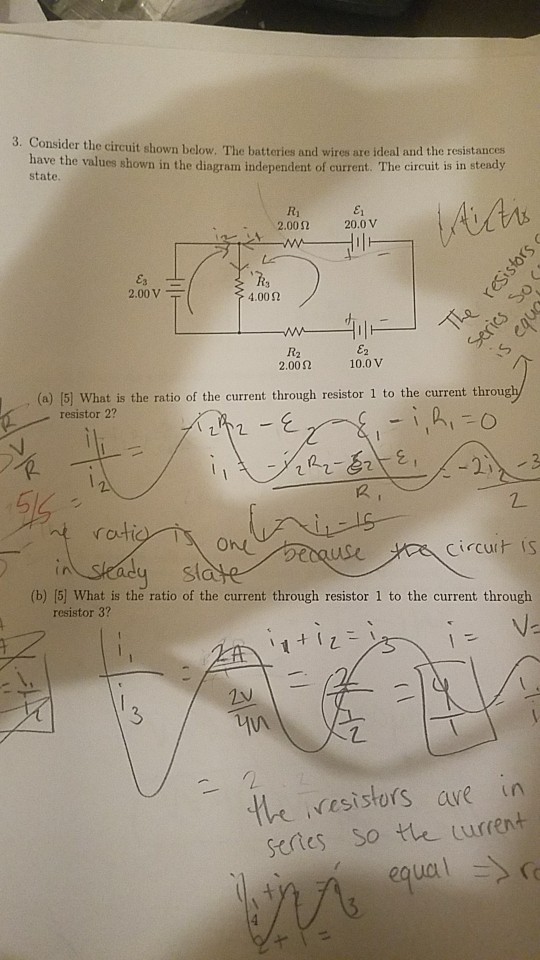 3. Consider the circuit shown below. The batteries and wires are ideal and the resistances
have the values shown in the diagram independent of current. The circuit is in steady
state.
R₁
2.00 Ω
ℰ₁
20.0 V
i₂
i₁
+
-
ℰ₃
2.00 V
i₃
R₃
4.00 Ω
The resistors
series so
is equal
+
-
R₂
2.00 Ω
ℰ₂
10.0 V
(a) [5] What is the ratio of the current through resistor 1 to the current through
resistor 2?
i₁/i₂ =
-i₂R₂ - ℰ₂ - ℰ₁ - i₁R₁ = 0
V/R
i₁ = (-i₂R₂ - ℰ₂ - ℰ₁)/R₁
5/5
The ratio is one because the circuit is
in steady state
(b) [5] What is the ratio of the current through resistor 1 to the current through
resistor 3?
i₁ + i₂ = i₃
i =
V=
i₁/i₃ = 2A/(2V/4Ω) = 2/(1/2) = 4/1
= 2
the resistors are in
series so the current
equal =>
2 + 1 =